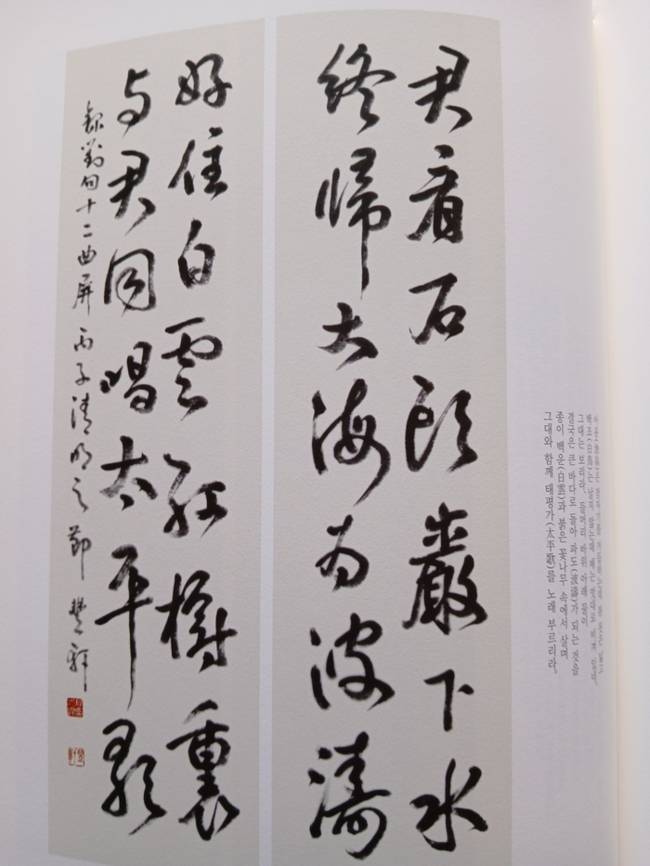 그대는 보라, 바위 아래 물이
결국은 큰 바다로 돌아 파도(波濤)가 되는 것을
종이 백운(白雲)과 붉은 꽃나무 속에서 살며
그대와 함께 태평가(太平歌)를 노래 부르리라.
君看石頭巖下水
終歸大海為波濤
好住白雲紅樹裏
与君同唱太平歌
錄對句十二曲屏 丙子清明之節